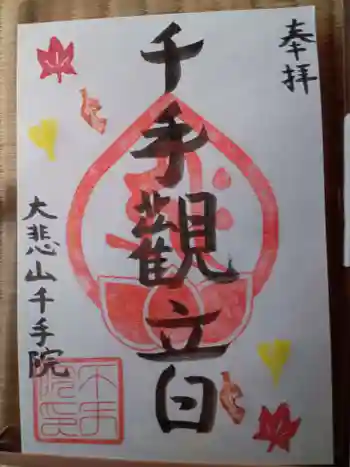 奉拝
千手觀音
大悲山千手院